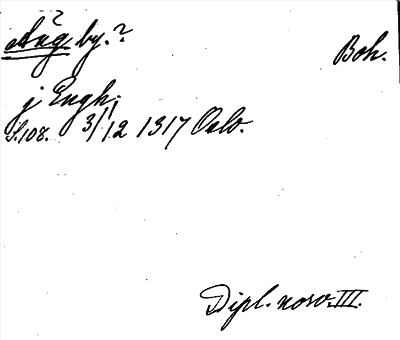 Aug by.?
Boh.
j Engh.
S.108. 3/12 1317 Oslo.
Dipl. norv. III.